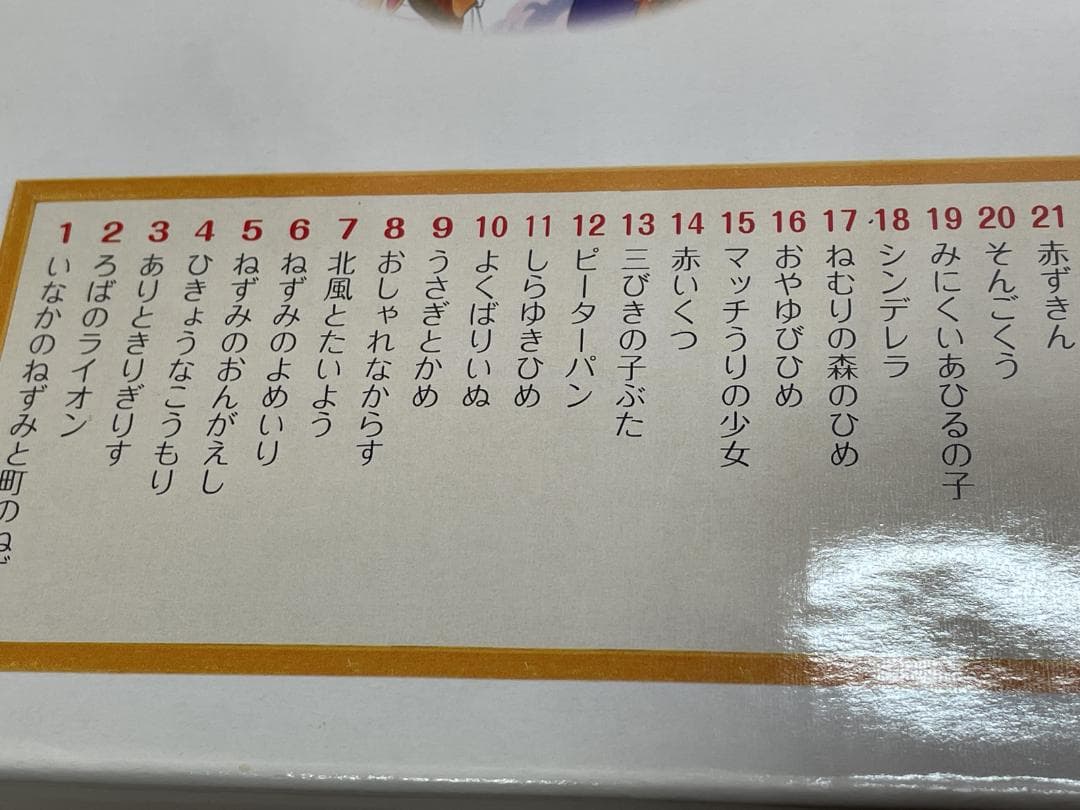 1 いなかのねずみと町のねず
2 ろばのライオン
3 ありときりぎりす
4 ひきょうなこうもり
5 ねずみのおんがえし
6 ねずみのよめいり
7 北風とたいよう
8 おしゃれなからす
9 うさぎとかめ
10 よくばりいぬ
11 しらゆきひめ
12 ピーターパン
13 三びきの子ぶた
14 赤いくつ
15 マッチうりの少女
16 おやゆびひめ
17 ねむりの森のひめ
18 シンデレラ
19 みにくいあひるの子
20 そんごくう
21 赤ずきん